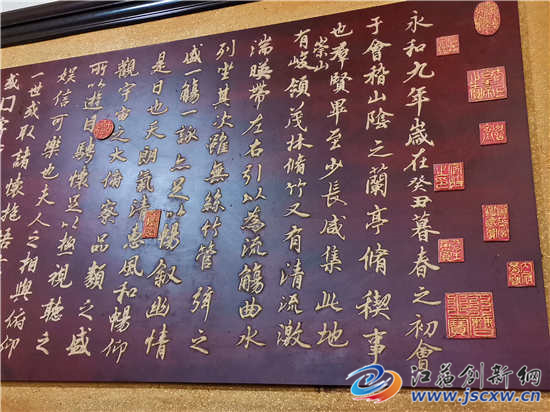 永和九年歲在癸丑暮春之初會
于會稽山陰之蘭亭脩稧事
也羣賢畢至少長咸集此地
有崇山峻領茂林脩竹又有清流激
湍暎帶左右引以為流觴曲水
列坐其次雖無絲竹管弦之
盛一觴一詠亦足以暢叙幽情
是日也天朗氣清惠風和暢仰
觀宇宙之大俯察品類之盛
所以遊目騁懷足以極視聽之
娛信可樂也夫人之相與俯仰
一世或取諸懷抱悟
江苏创新网
www.jscxw.cn